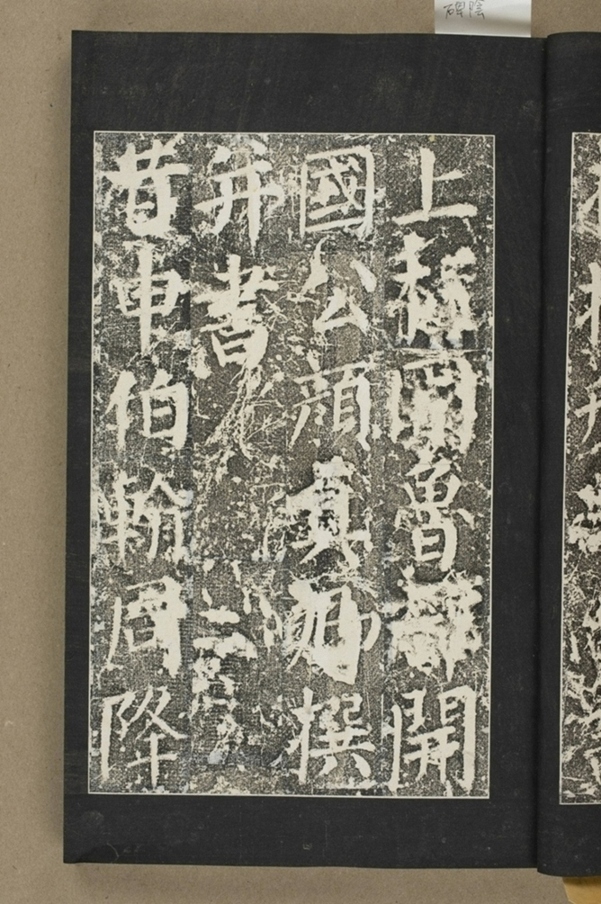 上柱國魯郡開
國公顏真卿撰
并書
昔申伯翰周降